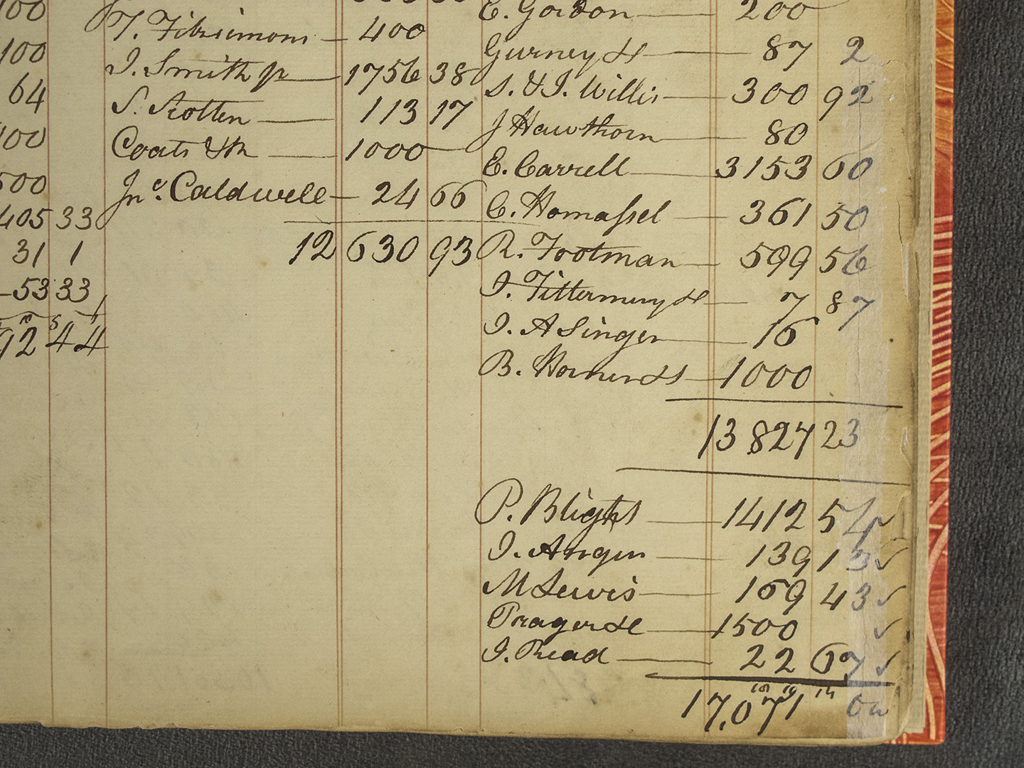 100
100
64
100
500
405 33
31 1
53 33
92 44
T. Fitzsimons — 400
J. Smith jr — 1756 38
S. Stotten — 113 17
Coats &Co — 1000
Jno Caldwell — 24 66
12 630 93
E. Gordon — 200
Gurney &Co — 87 2
S. & J. Willis — 300 92
J Hawthorn — 80
E. Carrell — 3153 60
C. Homassel — 361 50
R. Footman — 599 56
J. Tittermery &Co — 7 87
J. A Singer — 16
B. Horner &S — 1000
13 827 23
P. Blight — 1412 54
J. Angen — 139 13
M Lewis — 169 43
Prager &Co — 1500
J. Read — 22 67
17,071